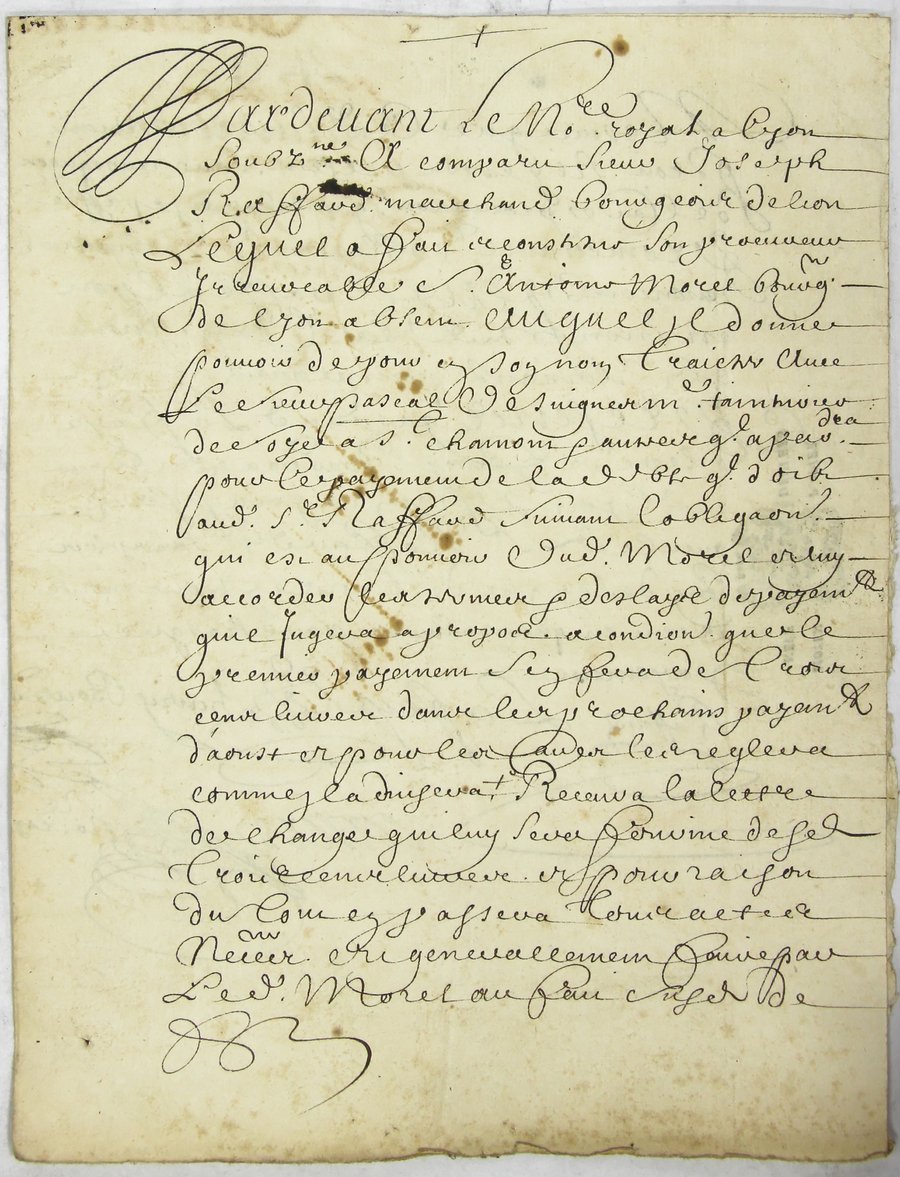 Pardevant Le No.re royal a Lyon
Soubz.ne A comparu sieur Joseph
Raffard. marchand bourgeois de lion
Lequel a fait et constitue son procureur
Irrevocable Sr Antoine Morel bourg.
de Lyon absent. Auquel Il donne
pouvoir de pour et so nom Traicter Avec
Le sieur pascal
de soye a St. chamont
pour le payement de la debte d oibt
aud. Sr. Raffard suivant l obligaon.
qui est au pouvoir Dud. Morel et luy
accorder les termes & deslayts de payem
quil Jugera a propos. a condion. que le
premier payement sera de Trois
cens livres dans les prochains payem
d'aoust et pour les autres les reglera
comme Il advisera + Recevra la lettre
de change qui luy sera fournie desd
Trois cens livres. et pour raison
du Tout en passera Tous actes
Necess. et generallement faire par
Led. Morel au fait susd de